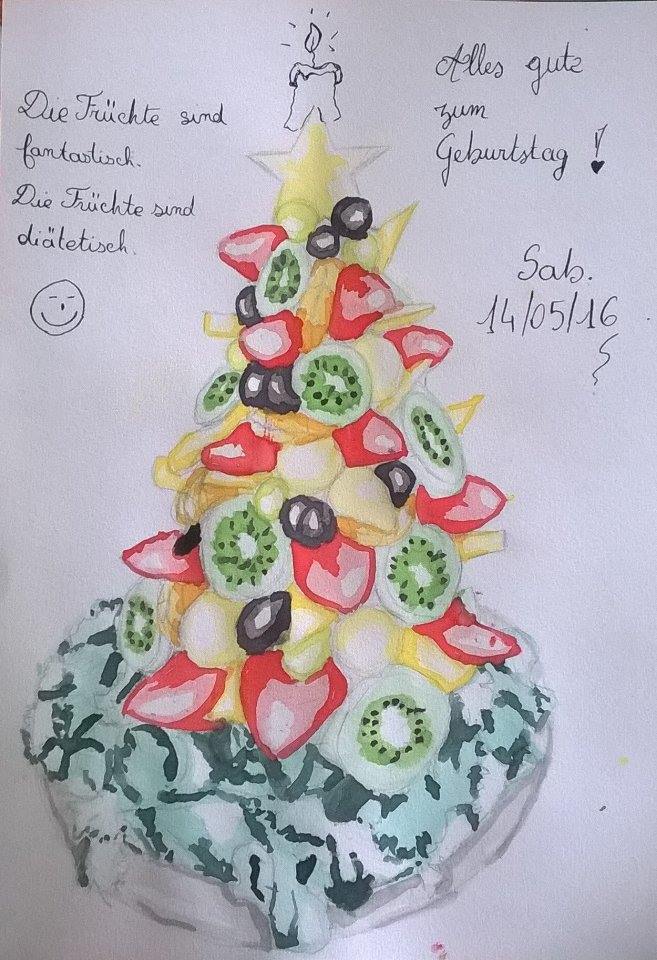 Die Früchte sind
fantastisch.
Die Früchte sind
diätetisch.
Alles gute
zum
Geburtstag !
Sab.
14/05/16